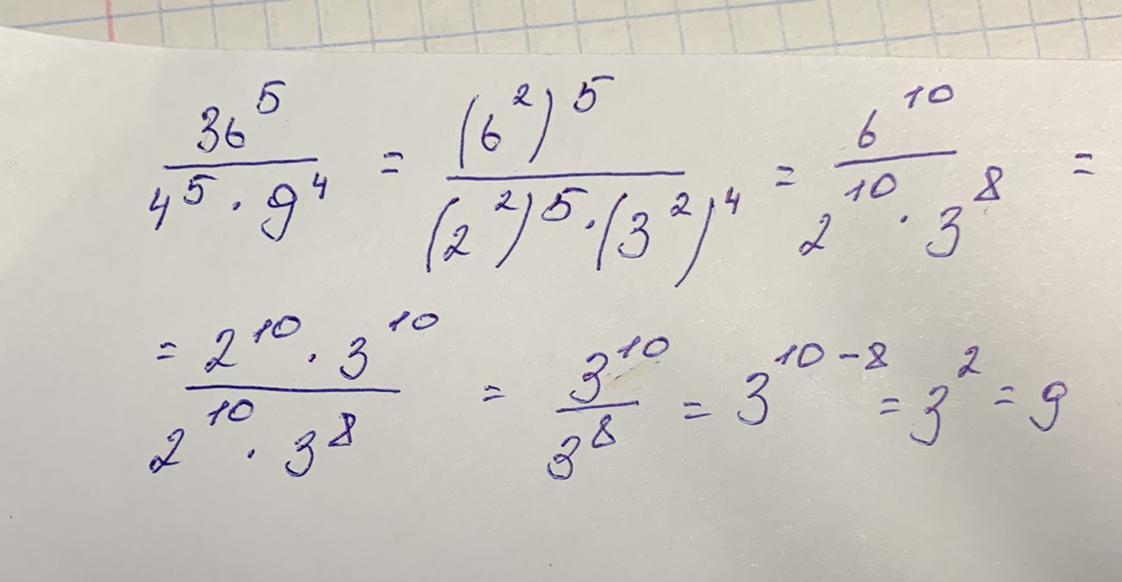 36^5 / (4^5 · 9^4) = (6^2)^5 / ((2^2)^5 · (3^2)^4) = 6^10 / (2^10 · 3^8) =
= (2^10 · 3^10) / (2^10 · 3^8) = 3^10 / 3^8 = 3^(10-8) = 3^2 = 9